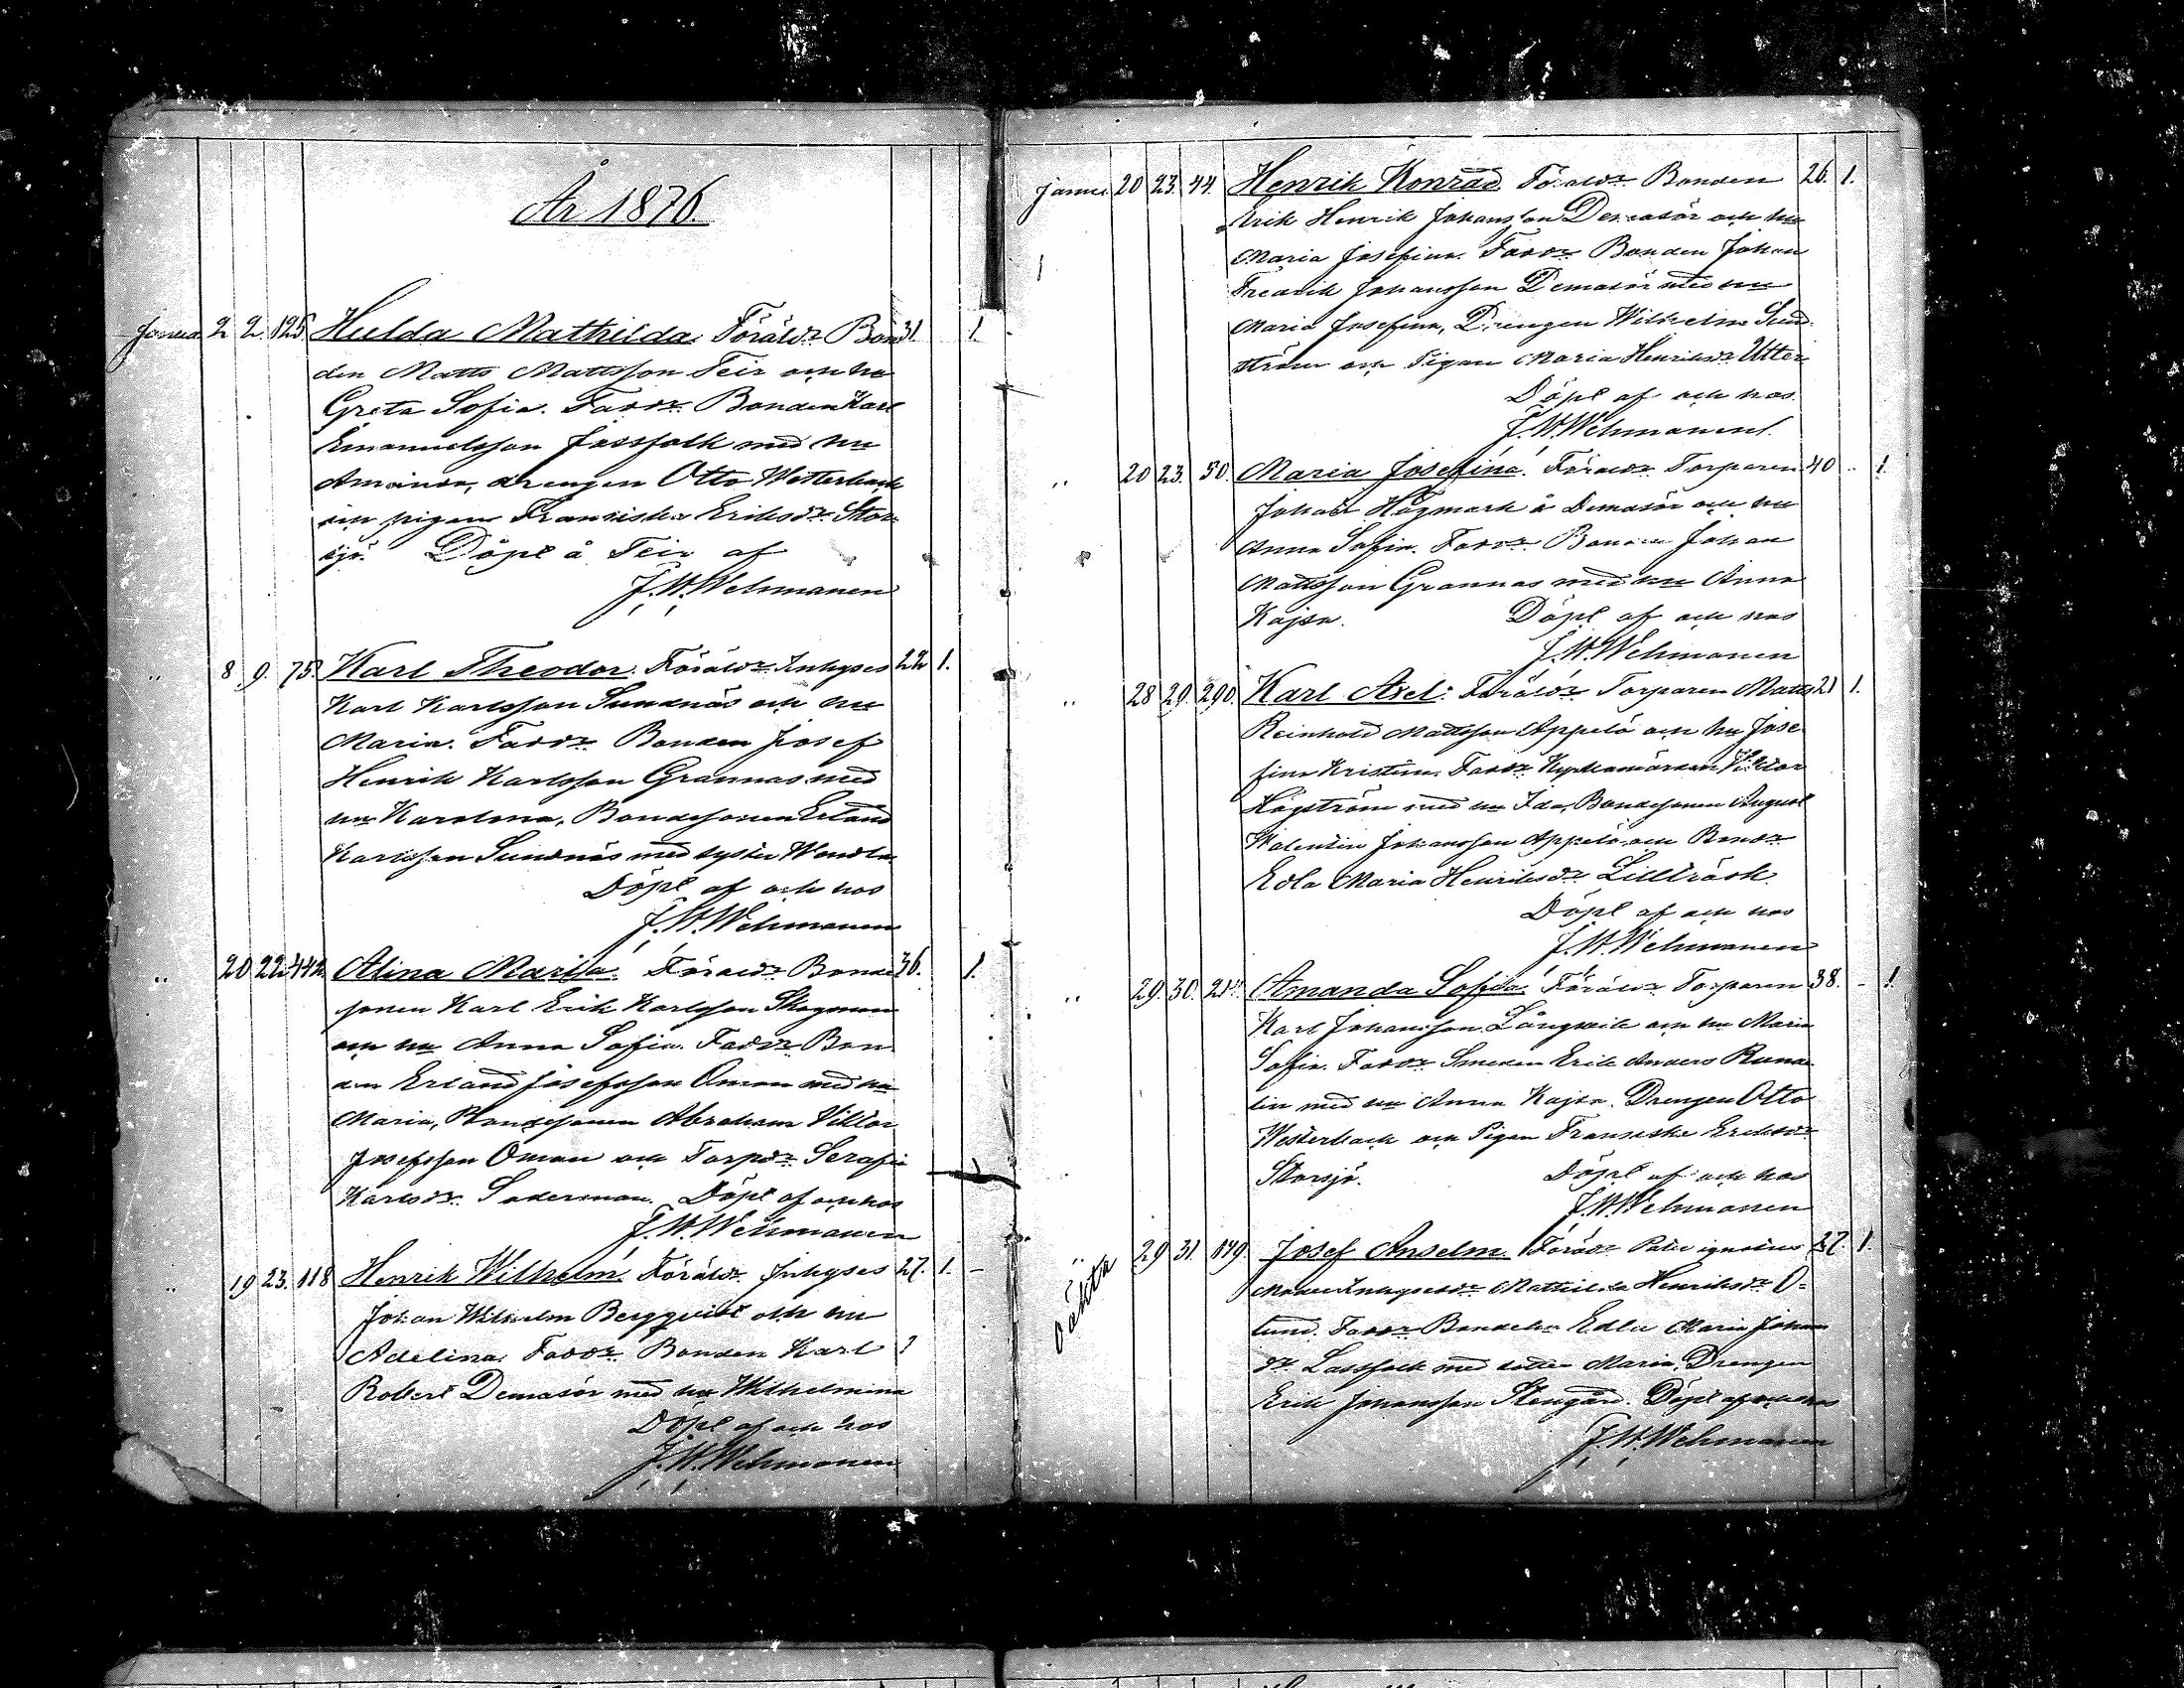 År 1876.
Janua 2 2 125 Hulda Mathilda. Föräldr Bon 31. 1.
den Matts Mattsson Teir och hu
Greta Sofia. Faddr Bonden Karl
Emanuelsson Jossfolk med hu
Amanda, drengen Otto Westerback
och pigan Fransiska Eriksdr Stor
sjö. Döpt å Teir af
J.W.Wehmanen
" 8 9. 75. Karl Theodor. Föräldr Inhyses 22 1.
Karl Karlsson Sundnäs och hu
Maria. Faddr Bonden Josef
Henrik Karlsson Grannas med
hu Karolina, Bondesonen Erland
Karlsson Sundnäs med syster Wendla
Döpt af och hos
J.W.Wehmanen
" 20 22 442. Alina Maria. Föräldr Bonde 36. 1.
sonen Karl Erik Karlsson Skogman
och hu Anna Sofia. Faddr Bon
den Erland Josefsson Öman med hu
Maria, Bondesonen Abraham Viktor
Josefsson Öman och Torpdr Serafia
Karlsdr Söderman. Döpt af och hos
J.W.Wehmanen
" 19 23. 118 Henrik Wilhelm. Föräldr Inhyses 27. 1. –
Johan Wilhelm Bergqvist och hu
Adelina. Faddr Bonden Karl
Robert Demasör med hu Wilhelmina
Döpt af och hos
J.W.Wehmanen
Janua 20 23. 44. Henrik Konrad. Föräldr Bonden 26. 1.
Erik Henrik Johansson Demasör och hu
Maria Josefina. Faddr Bonden Johan
Fredrik Johansson Demasör med hu
Maria Josefina, Drengen Wilhelm Sund
ström och Pigan Maria Henriksdr Utter
Döpt af och hos
J.W.Wehmanen.
" 20 23. 50. Maria Josefina. Föräldr Torparen 40 " 1
Johan Högmark å Demasör och hu
Anna Sofia. Faddr Bonden Johan
Mattsson Grannas med hu Anna
Kajsa. Döpt af och hos
J.W.Wehmanen
" 28 29. 290. Karl Axel. Föräldr Torparen Matts 21 1.
Reinhold Mattsson Appelö och hu Jose
fina Kristina. Faddr Kyrkovärden Viktor
Högström med hu Ida, Bondesonen August
Walentin Johansson Appelö och Bondr
Edla Maria Henriksdr Lillträsk.
Döpt af och hos
J.W.Wehmanen
" 29. 30. 21 Amanda Sofia. Föräldr Torparen 38. – 1
Karl Johansson Långvik och hu Maria
Sofia. Faddr Smeden Erik Anders Runde
lin med hu Anna Kajsa. Drengen Otto
Westerback och Pigan Fransiska Eriksdr
Storsjö. Döpt af och hos
J.W.Wehmanen
" 29 31. 179. Josef Anselm. Föräldr Pater ignotus 27. 1.
oäkta
Moder Inhysesdr Mathilda Henriksdr Ö-
lund. Faddr Bondehu Edla Maria Johans
dr Lassfolk med dotter Maria. Drengen
Erik Johansson Stengård. Döpt af och hos
J.W.Wehmanen